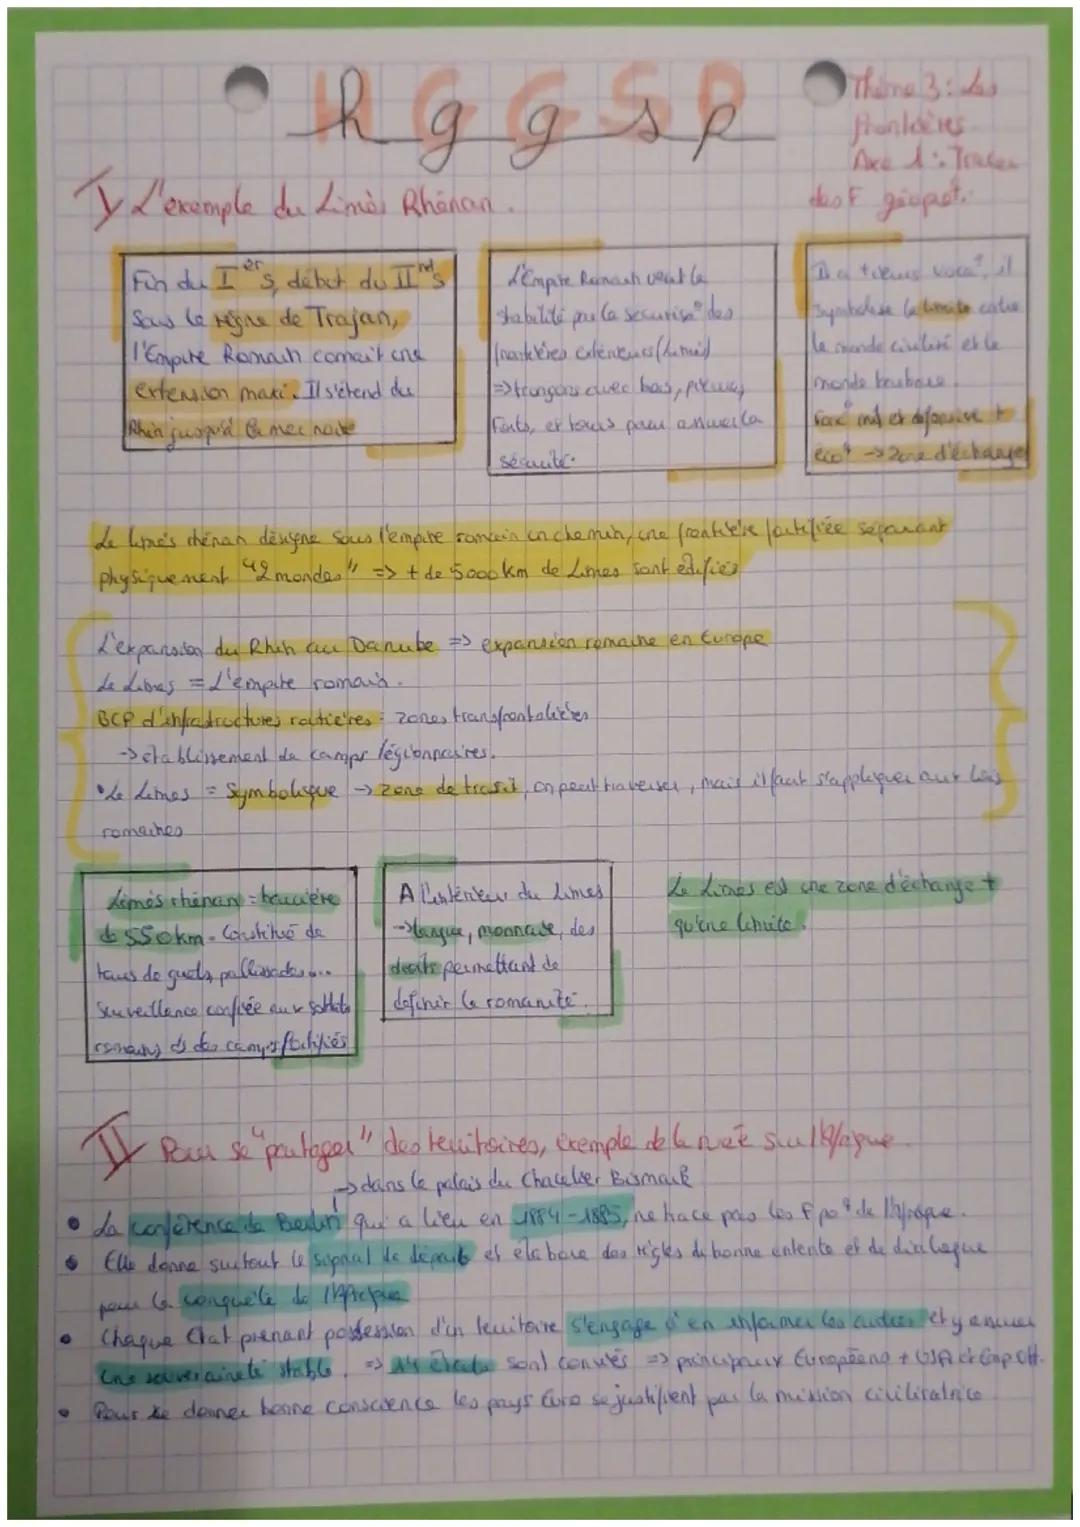 HGGSP
hggsp
Thème 3: Les
frontières
Axe 1: Tracer
des F géopot.
I/ L'exemple du Limès Rhénan.
Fin du Ier s, début du IInd s
Sous le règne de Trajan,
l'Empire Romain connait une
extension maxi. Il s'étend du
Rhin jusqu'à la mer noire
L'Empire Romain veut la
stabilité par la sécurisa° des
frontières extérieures (Limès)
=> tronçons avec bois, pierres,
Forts, et tours pour assurer la
sécurité.
Il a +ieurs voca°, il
symbolise la limite entre
le monde civilisé et le
monde barbare.
Fonc° mil et défensive +
éco° -> zone d'échange
Le limès rhénan désigne sous l'empire romain un chemin, une frontière fortifiée séparant
physiquement "2 mondes" => + de 5000 km de Limes sont édifiés
L'expansion du Rhin au Danube => expansion romaine en Europe
Le Limes = L'empire romain.
BCP d'infrastructures routières: zones transfrontalières
-> établissement de camps légionnaires.
• Le Limes = Symbolique -> zone de transit, on peut traverser, mais il faut s'appliquer aux lois
romaines
Limès rhénan = barrière
de 550km. Constitué de
tours de guets, pallissades...
Surveillance confiée aux soldats
romains ds des camps fortifiés
A l'intérieur du Limes
-> langue, monnaie, des
droits permettant de
définir la romanité.
Le Limes est une zone d'échange +
qu'une limite.
II/ Pour se "partager" des territoires, exemple de la ruée sur l'Afrique.
-> dans le palais du Chacelier Bismark
• La conférence de Berlin qui a lieu en 1884-1885, ne trace pas les F po° de l'Afrique.
• Elle donne surtout le signal de départ et élabore des règles de bonne entente et de dialogue
pour la conquête de l'Afrique
• Chaque Etat prenant possession d'un territoire s'engage à en informer les autres et y assurer
une souveraineté stable. => 14 états sont conviés => principaux Européens + USA et Emp Ott.
• Pour se donner bonne conscience les pays Euro se justifient par la mission civilisatrice